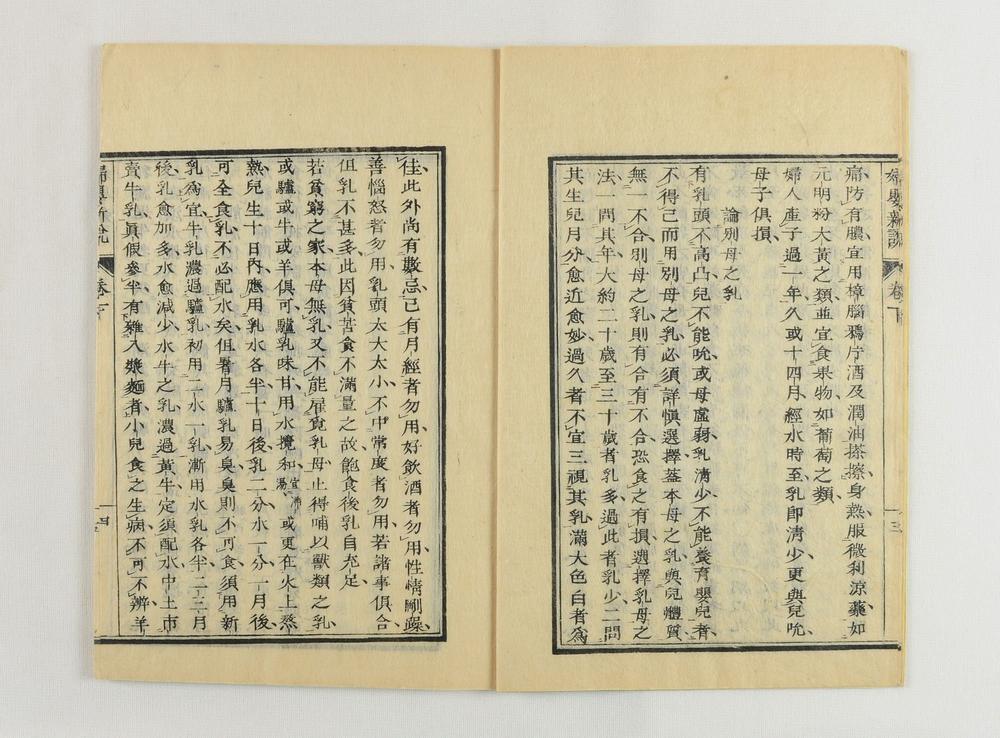 婦嬰新說
卷下
三
痛防有膿宜用樟腦鴉片酒及潤油搽擦身熱服微利涼藥如
元明粉大黃之類並宜食果物如葡萄之類
婦人產子過一年久或十四月經水時至乳卽淸少更與兒吮
母子俱損
論別母之乳
有乳頭不高凸兒不能吮或母虛弱乳淸少不能養育嬰兒者
不得已而用別母之乳必須詳愼選擇蓋本母之乳與兒體質
無一不合別母之乳則有合有不合恐食之有損選擇乳母之
法一問其年大約二十歲至三十歲者乳多過此者乳少二問
其生兒月分愈近愈妙過久者不宜三視其乳滿大色白者爲
佳此外尚有數忌已有月經者勿用好飮酒者勿用性情剛躁
善惱怒者勿用乳頭太大太小不中常度者勿用若諸事俱合
但乳不甚多此因貧苦食不滿量之故飽食後乳自充足
若貧窮之家本母無乳又不能雇覓乳母止得哺以獸類之乳
或驢或牛或羊俱可驢乳味甘用水攪和宜沸湯或更在火上蒸
熱兒生十日內應用乳水各半十日後乳二分水一分一月後
可全食乳不必配水矣但暑月驢乳易臭臭則不可食須用新
乳爲宜牛乳濃過驢乳初用二水一乳漸用水乳各半二三月
後乳愈加多水愈減少水牛之乳濃過黃牛定須配水中土市
賣牛乳眞假參半有雜入漿麵者小兒食之生病不可不辨羊
婦嬰新說
卷下
四